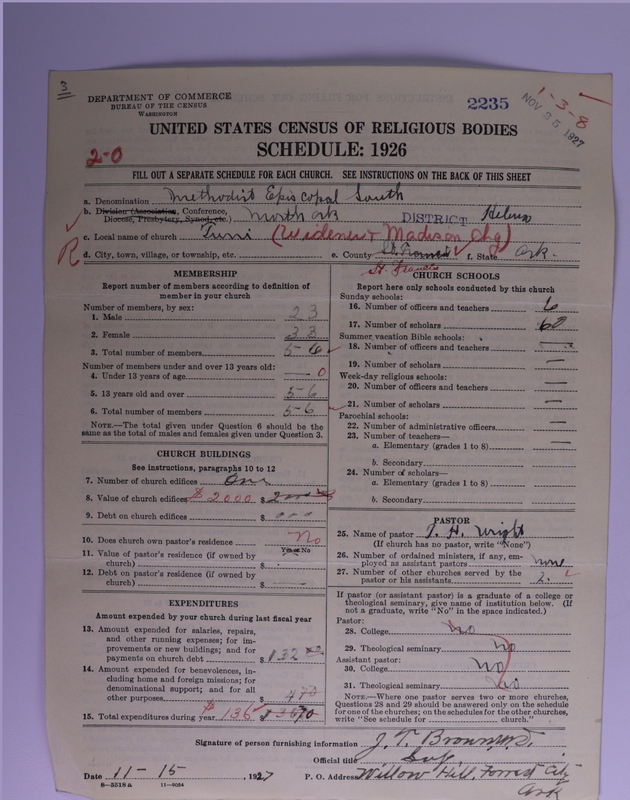 3
DEPARTMENT OF COMMERCE
BUREAU OF THE CENSUS
WASHINGTON
2235
1-3-8
NOV 25 1927
UNITED STATES CENSUS OF RELIGIOUS BODIES
SCHEDULE: 1926
2-0
FILL OUT A SEPARATE SCHEDULE FOR EACH CHURCH. SEE INSTRUCTIONS ON THE BACK OF THIS SHEET
a. Denomination Methodist Episcopal South
b. Division (Association, Conference, Diocese, Presbytery, Synod, etc.) North Ark DISTRICT Helena
R
c. Local name of church (Widener & Madison Chg)
d. City, town, village, or township, etc. e. County St. Francis f. State Ark.
St. Francis
MEMBERSHIP
Report number of members according to definition of
member in your church
Number of members, by sex:
1. Male 23
2. Female 33
3. Total number of members 56
Number of members under and over 13 years old:
4. Under 13 years of age — 0
5. 13 years old and over 56
6. Total number of members 56
NOTE.—The total given under Question 6 should be the
same as the total of males and females given under Question 3.
CHURCH BUILDINGS
See instructions, paragraphs 10 to 12
7. Number of church edifices One
8. Value of church edifices $2000 $
9. Debt on church edifices $
10. Does church own pastor's residence No
Yes or No
11. Value of pastor's residence (if owned by
church) $
12. Debt on pastor's residence (if owned by
church) $
EXPENDITURES
Amount expended by your church during last fiscal year
13. Amount expended for salaries, repairs,
and other running expenses; for im-
provements or new buildings; and for
payments on church debt $132
14. Amount expended for benevolences, in-
cluding home and foreign missions; for
denominational support; and for all
other purposes $
15. Total expenditures during year $136 $
CHURCH SCHOOLS
Report here only schools conducted by this church
Sunday schools:
16. Number of officers and teachers 6
17. Number of scholars 60
Summer vacation Bible schools:
18. Number of officers and teachers —
19. Number of scholars —
Week-day religious schools:
20. Number of officers and teachers —
21. Number of scholars —
Parochial schools:
22. Number of administrative officers —
23. Number of teachers—
a. Elementary (grades 1 to 8) —
b. Secondary
24. Number of scholars—
a. Elementary (grades 1 to 8)
b. Secondary
PASTOR
25. Name of pastor J. H. Wright
(If church has no pastor, write "None")
26. Number of ordained ministers, if any, em-
ployed as assistant pastors none
27. Number of other churches served by the
pastor or his assistants 2.
If pastor (or assistant pastor) is a graduate of a college or
theological seminary, give name of institution below. (If
not a graduate, write "No" in the space indicated.)
Pastor:
28. College No
29. Theological seminary No
Assistant pastor:
30. College No
31. Theological seminary No
NOTE.—Where one pastor serves two or more churches,
Questions 28 and 29 should be answered only on the schedule
for one of the churches; on the schedules for the other churches,
write "See schedule for church."
Signature of person furnishing information J. T.
Official title Sup.
Date 11-15, 1927 P. O. Address Willow Hill, Forrest City
Ark
8—5518a 11—9024